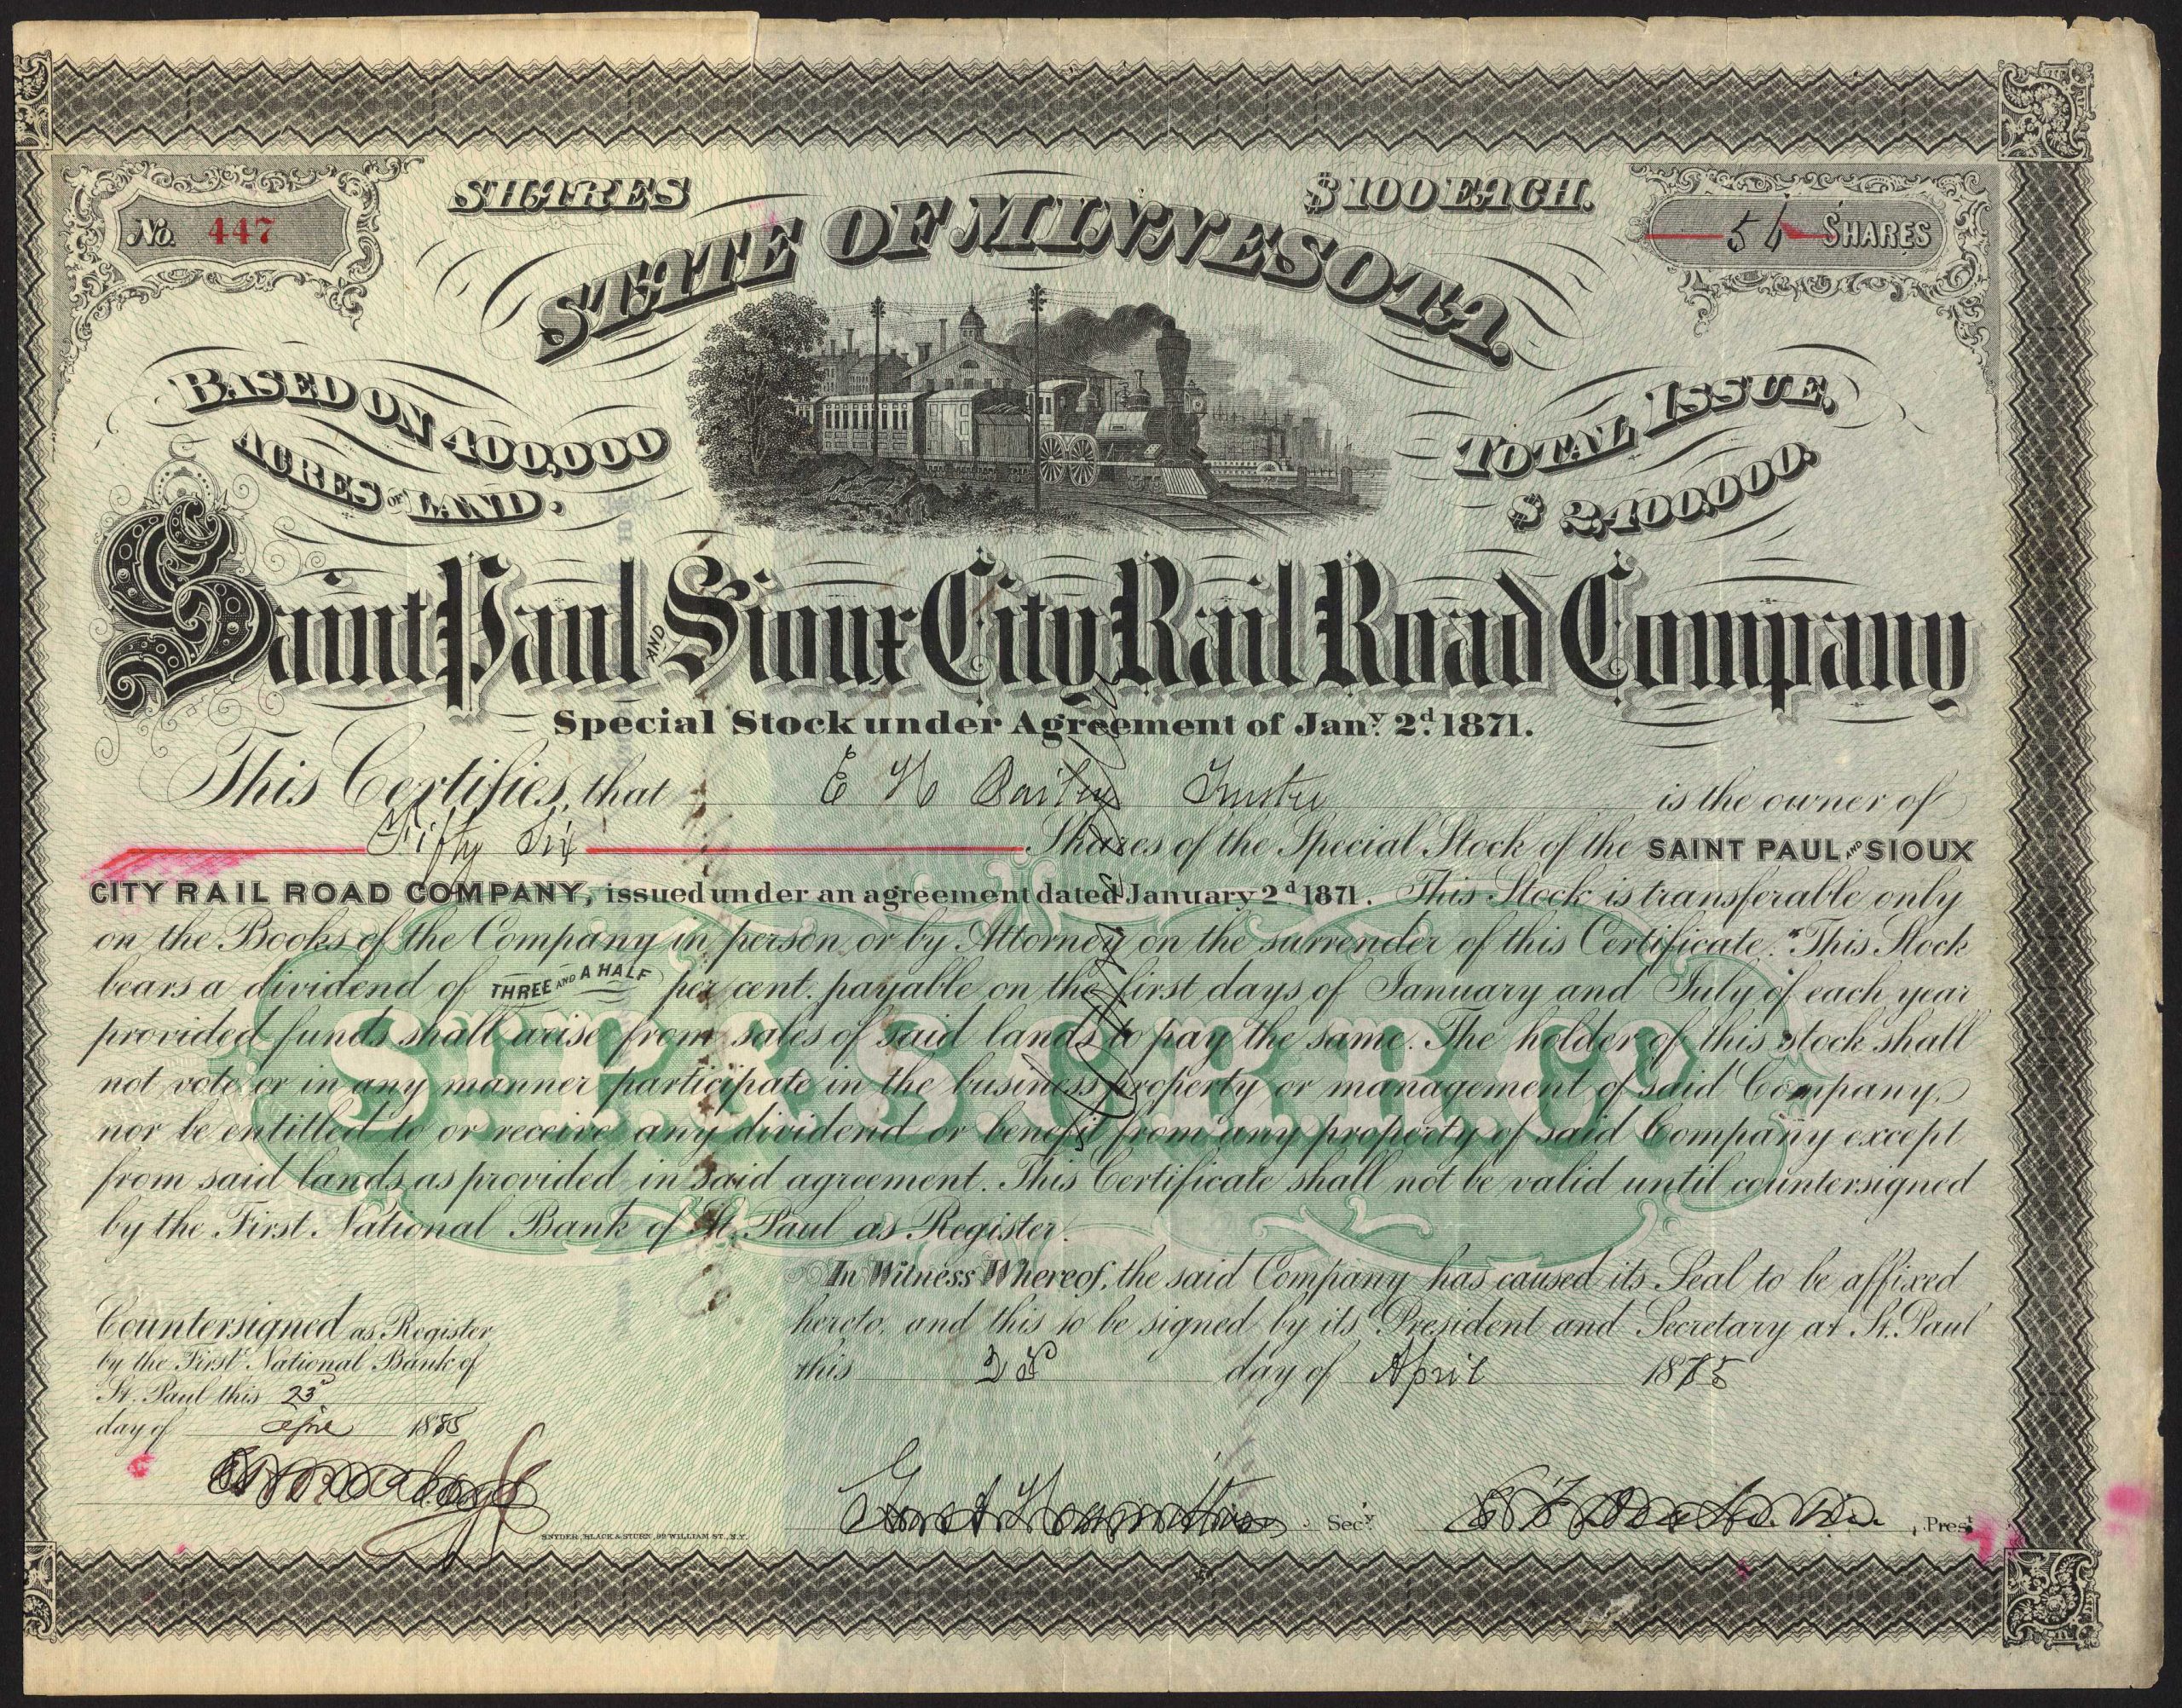 SHARES $100 EACH.
No. 447
56 SHARES
STATE OF MINNESOTA.
BASED ON 400,000
ACRES OF LAND.
TOTAL ISSUE,
$2,400,000.
Saint Paul AND Sioux City Rail Road Company
Special Stock under Agreement of Jany. 2d. 1871.
This Certifies, that E H Bailey Trustee is the owner of
Fifty Six Shares of the Special Stock of the SAINT PAUL AND SIOUX
CITY RAIL ROAD COMPANY, issued under an agreement dated January 2d 1871. This Stock is transferable only
on the Books of the Company in person or by Attorney on the surrender of this Certificate. This Stock
bears a dividend of THREE AND A HALF per cent. payable on the first days of January and July of each year
provided funds shall arise from sales of said lands to pay the same. The holder of this stock shall
not vote or in any manner participate in the business property or management of said Company,
nor be entitled to or receive any dividend or benefit from any property of said Company except
from said lands as provided in said agreement. This Certificate shall not be valid until countersigned
by the First National Bank of St. Paul as Register.
ST.P. & S.C.R.R.Co.
In Witness Whereof, the said Company has caused its Seal to be affixed
hereto, and this to be signed by its President and Secretary at St. Paul
this day of April 1885
Countersigned as Register
by the First National Bank of
St. Paul this 23d
day of 1885
Secy.
Prest.
SNYDER, BLACK & STURN, 92 WILLIAM ST., N.Y.